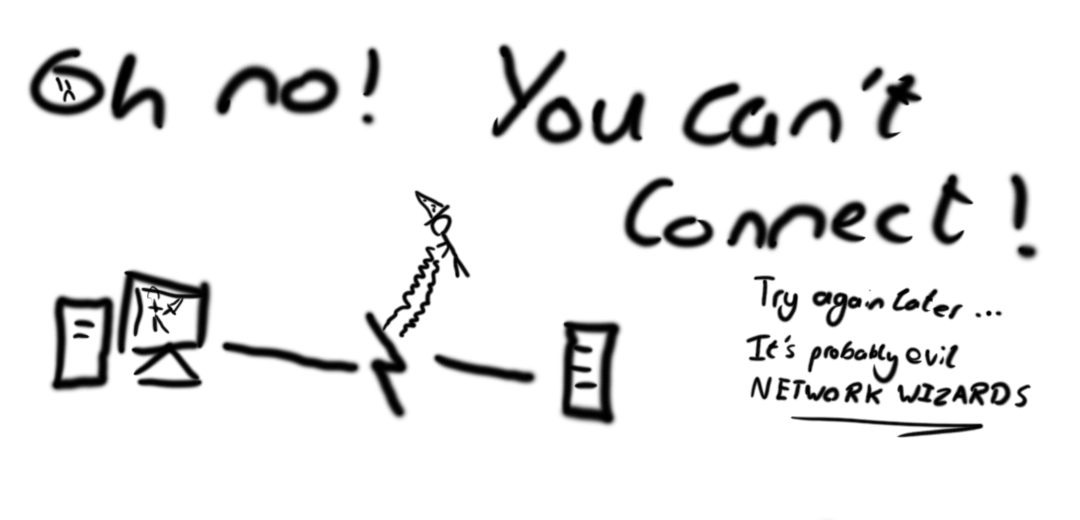 Oh no! You can't
Connect!
Try again later...
It's probably evil
NETWORK WIZARDS